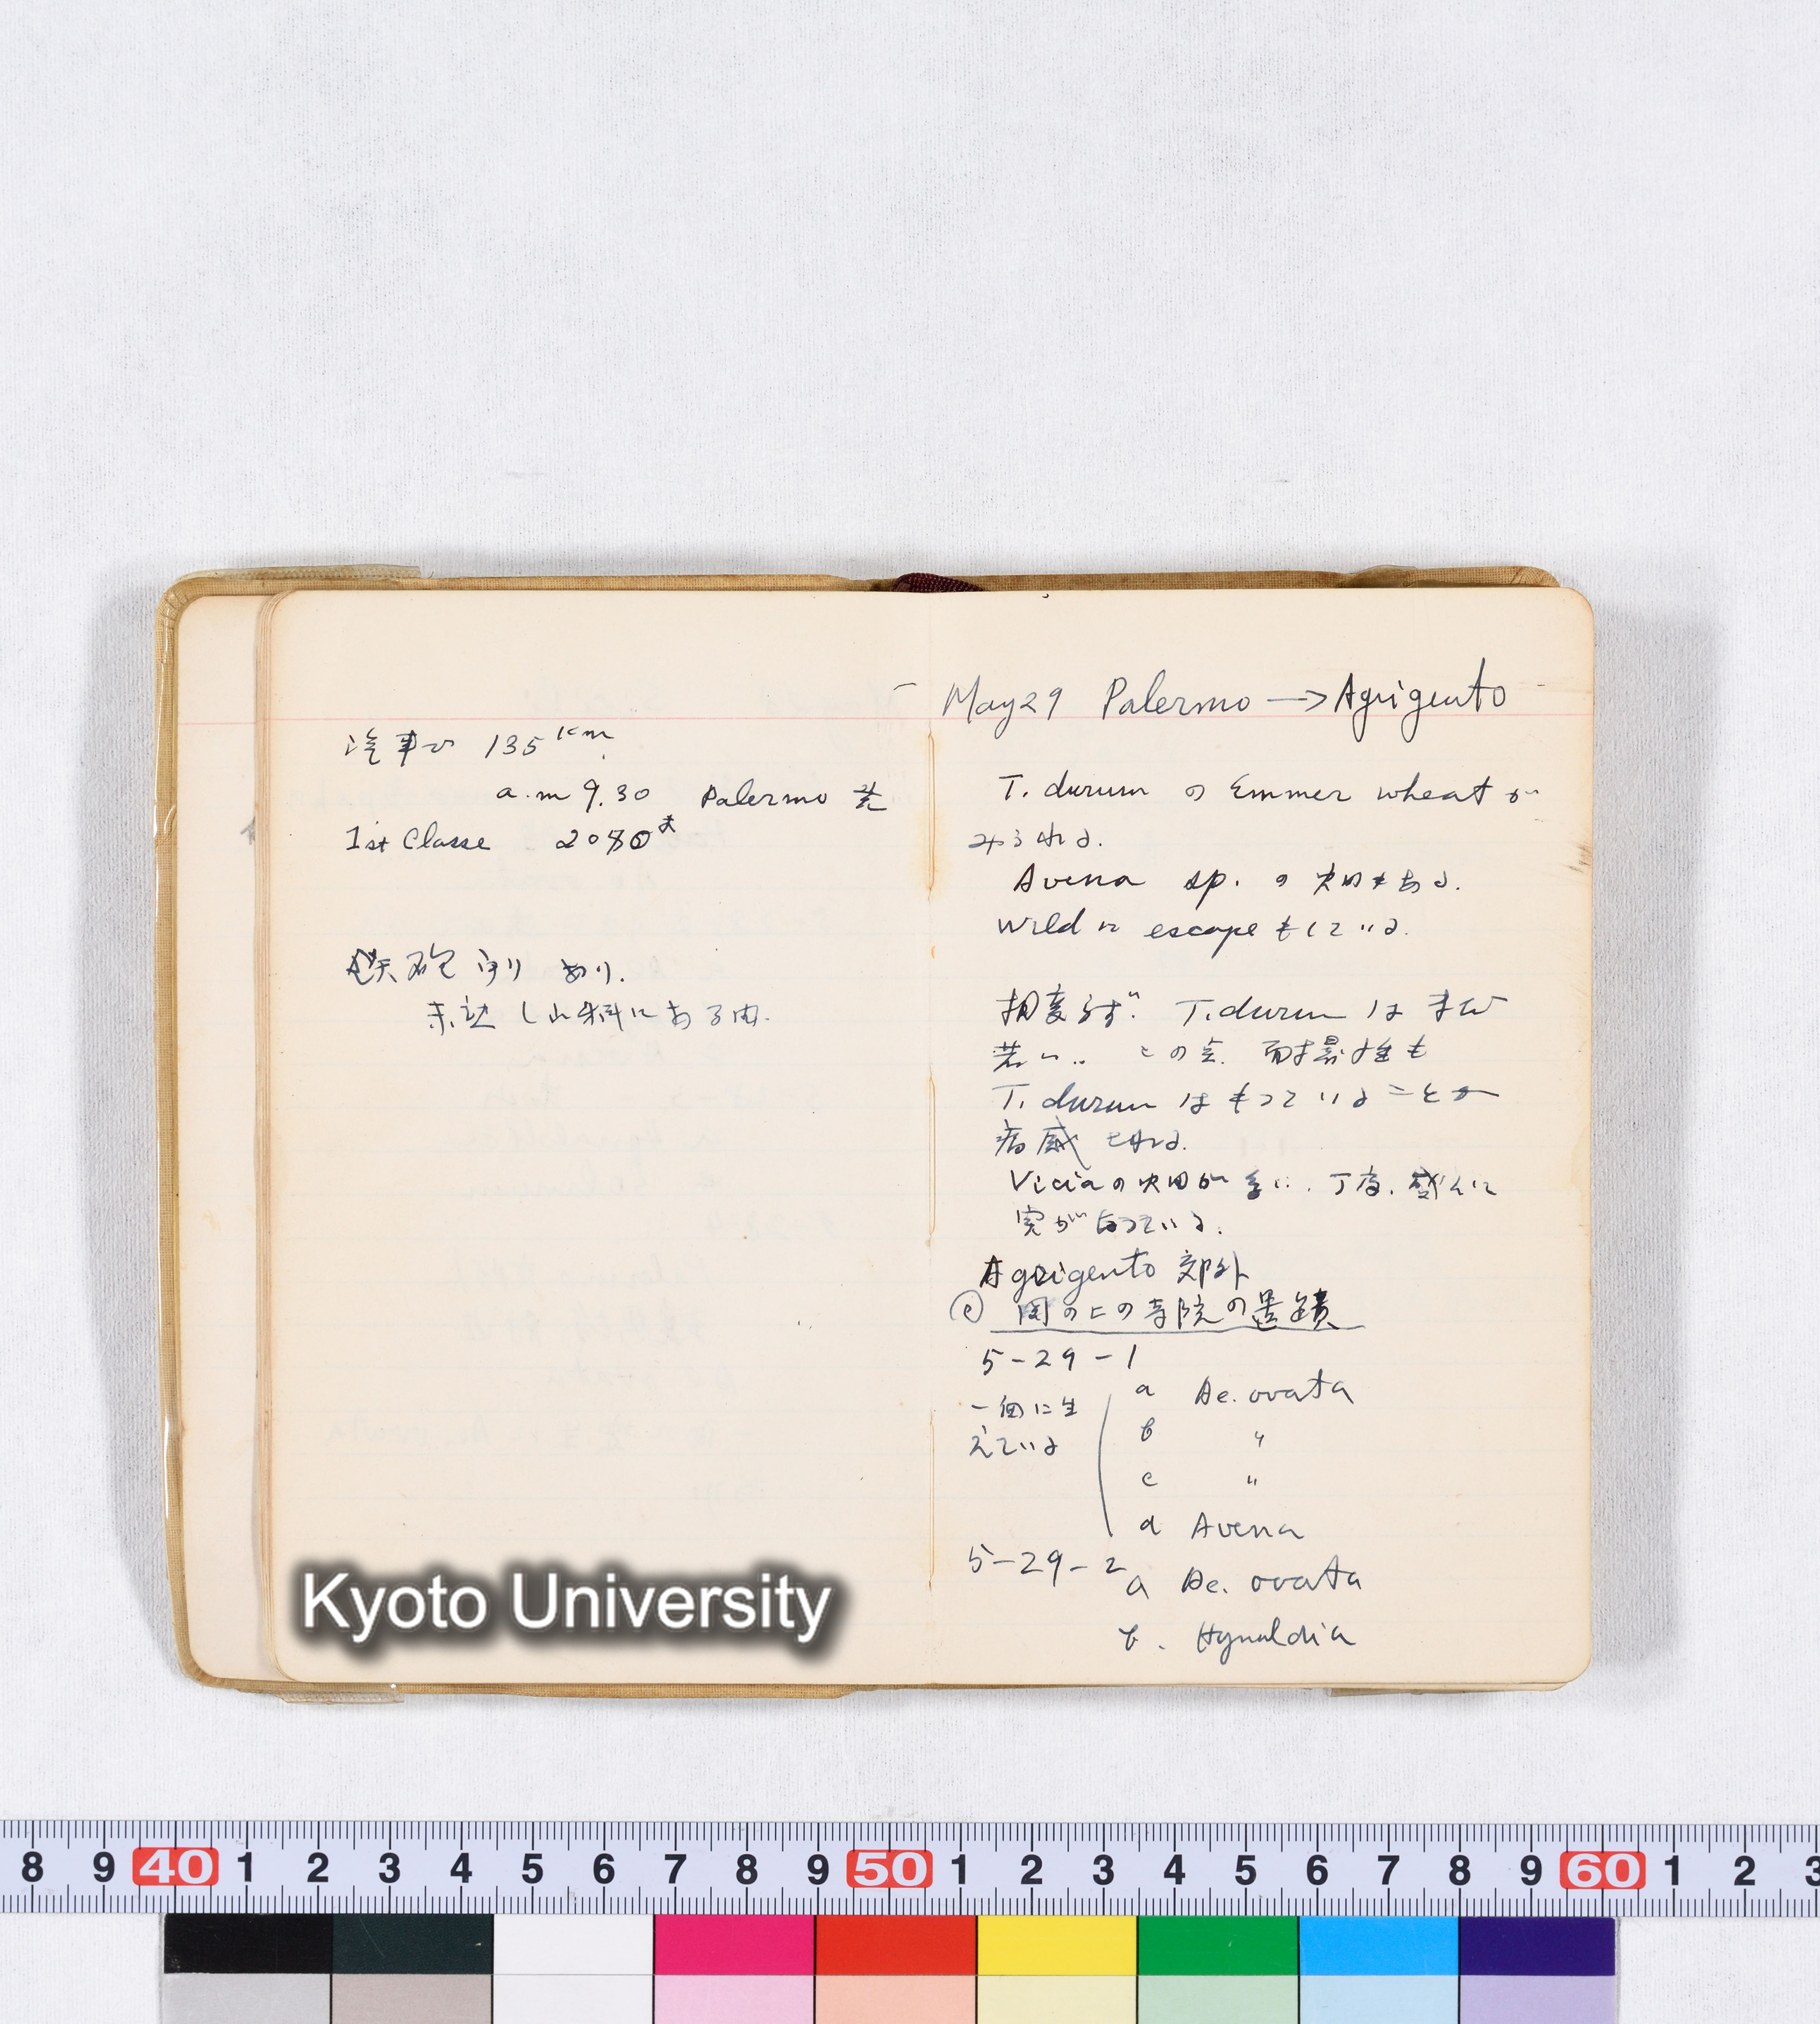 汽車で 135 km
a.m 9.30 Palermo 発
1st Classe
鉄砲 あり.
May 29 Palermo → Agrigento
T. durum の Emmer wheat が
みられる.
Avena sp. の 畑もある.
wild に escape もしている.
T. durum は まだ
若い.. この 耐 性も
T. durum は もっていることが
Vicia の 畑が 多い. 丁度. 盛んに
実が なっている.
Agrigento 郊外
の上の寺院の遺蹟
5-29-1
一個に生
えている
a Ae. ovata
b 〃
c 〃
d Avena
5-29-2 a Ae. ovata
b. Hynaldia
Kyoto University
8 9 40 1 2 3 4 5 6 7 8 9 50 1 2 3 4 5 6 7 8 9 60 1 2 3